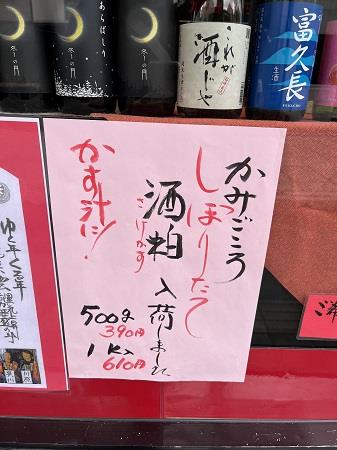 冬の月
あらばしり
冬の月
冬の月
これが
酒じゃ
富久長
生酒
FUKUCHO
かみごころ
しぼりたて
酒粕 入荷しました
さけかす
かす汁に!
500g
390円
1Kg
610円
ゆく年くる年
ご